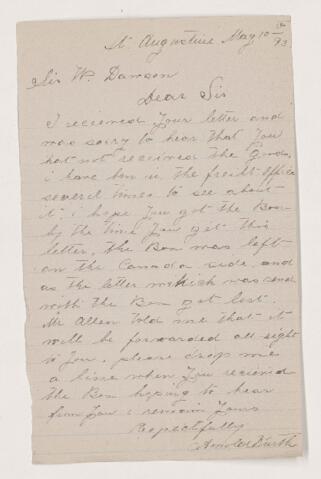 St Augustine May 10th /93
Sir Wm Dawson
Dear Sir
I recieved your letter and
was sorry to hear that you
hat not recieved the Goods
i have ben in the freit office
severel times to see about
it i hope you got the Box
by the time you get this
letter, the Box was left
on the Canada side and
as the letter which was send
with the Box got lost.
Mr Allen told me that it
will be forwarded all right
to you, please drop me
a line when you recieved
the Box hoping to hear
from you i remain yours
Respectfully
Arnold Burth